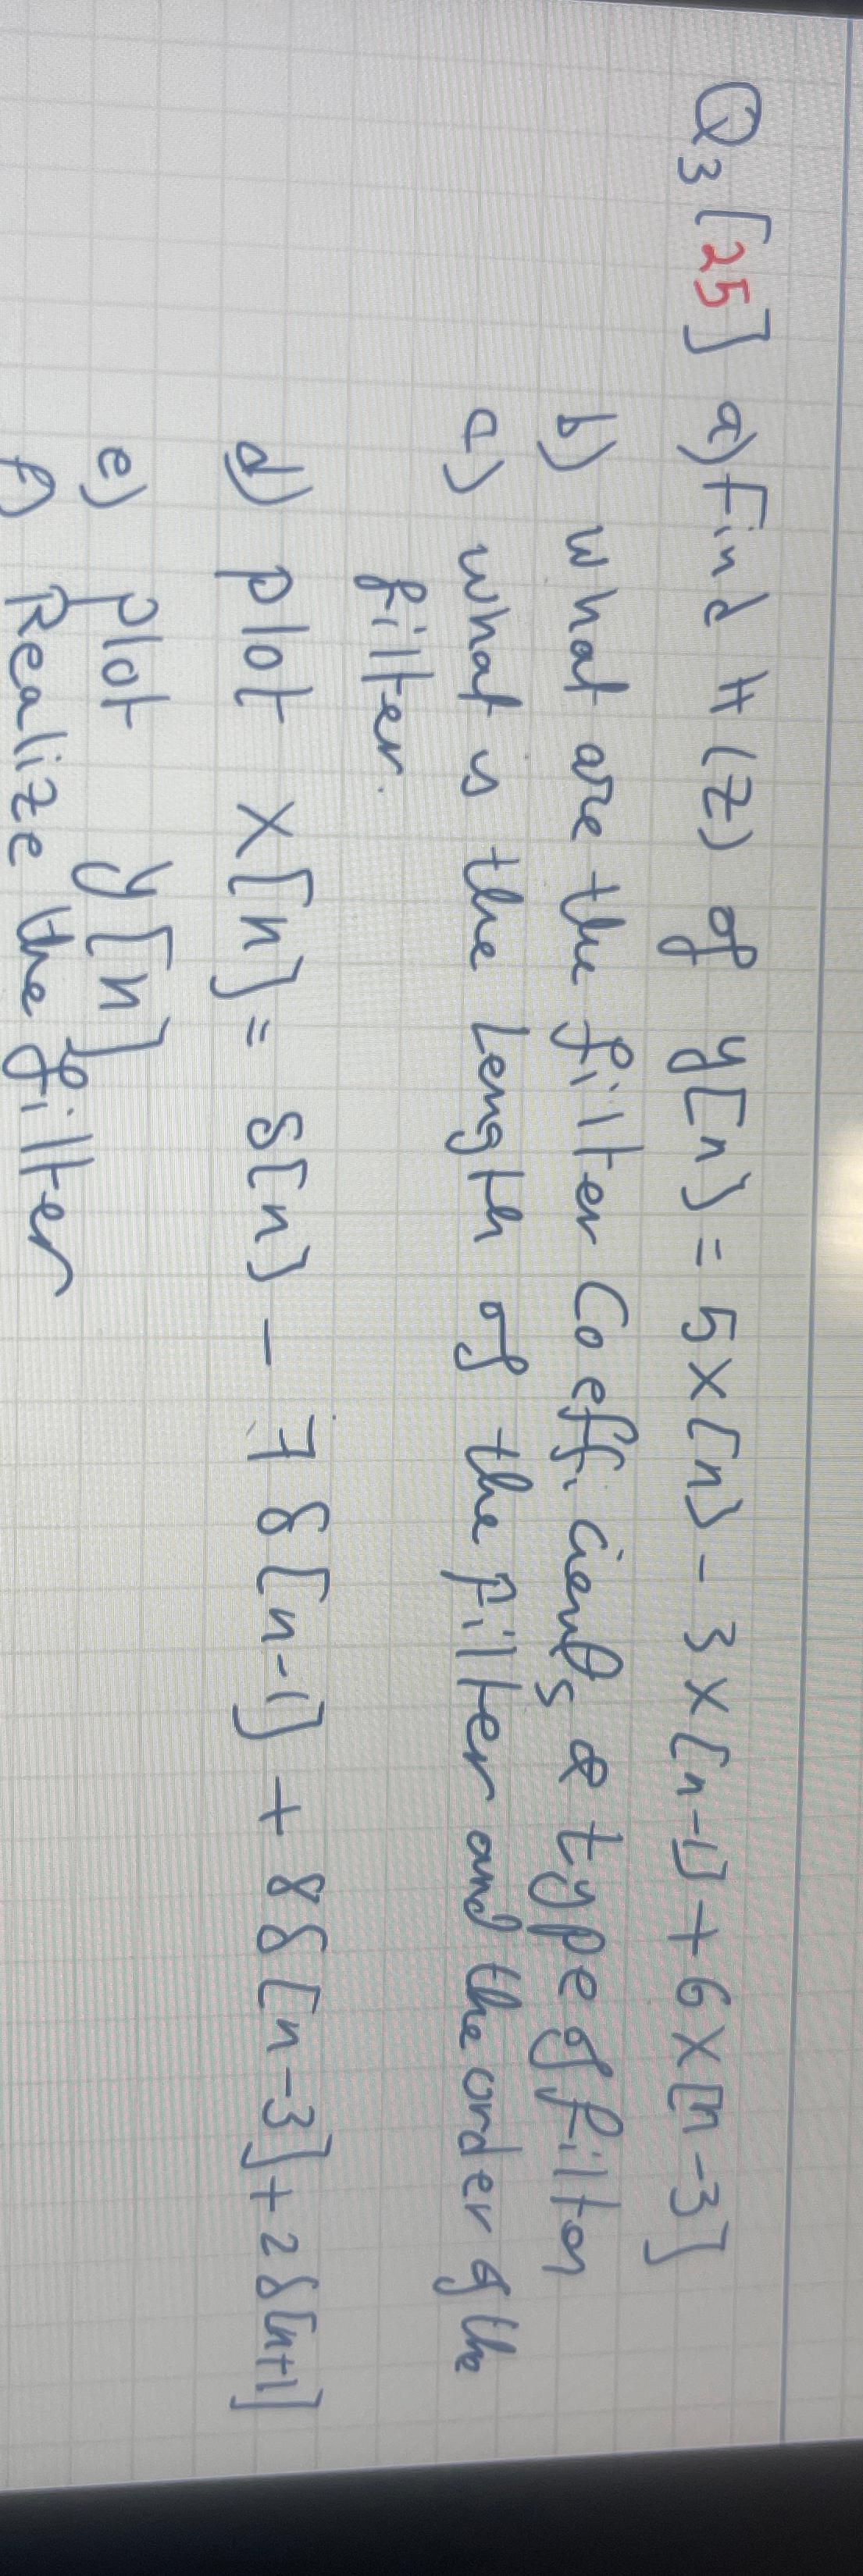 Q3 [25] a) Find H(z) of y[n] = 5x[n] - 3x[n-1] + 6x[n-3]
b) what are the filter Coefficients & type of filter
c) what is the length of the filter and the order of the
filter.
d) plot x[n] = δ[n] - 7δ[n-1] + 8δ[n-3] + 2δ[n+1]
e) plot y[n]
f) Realize the filter